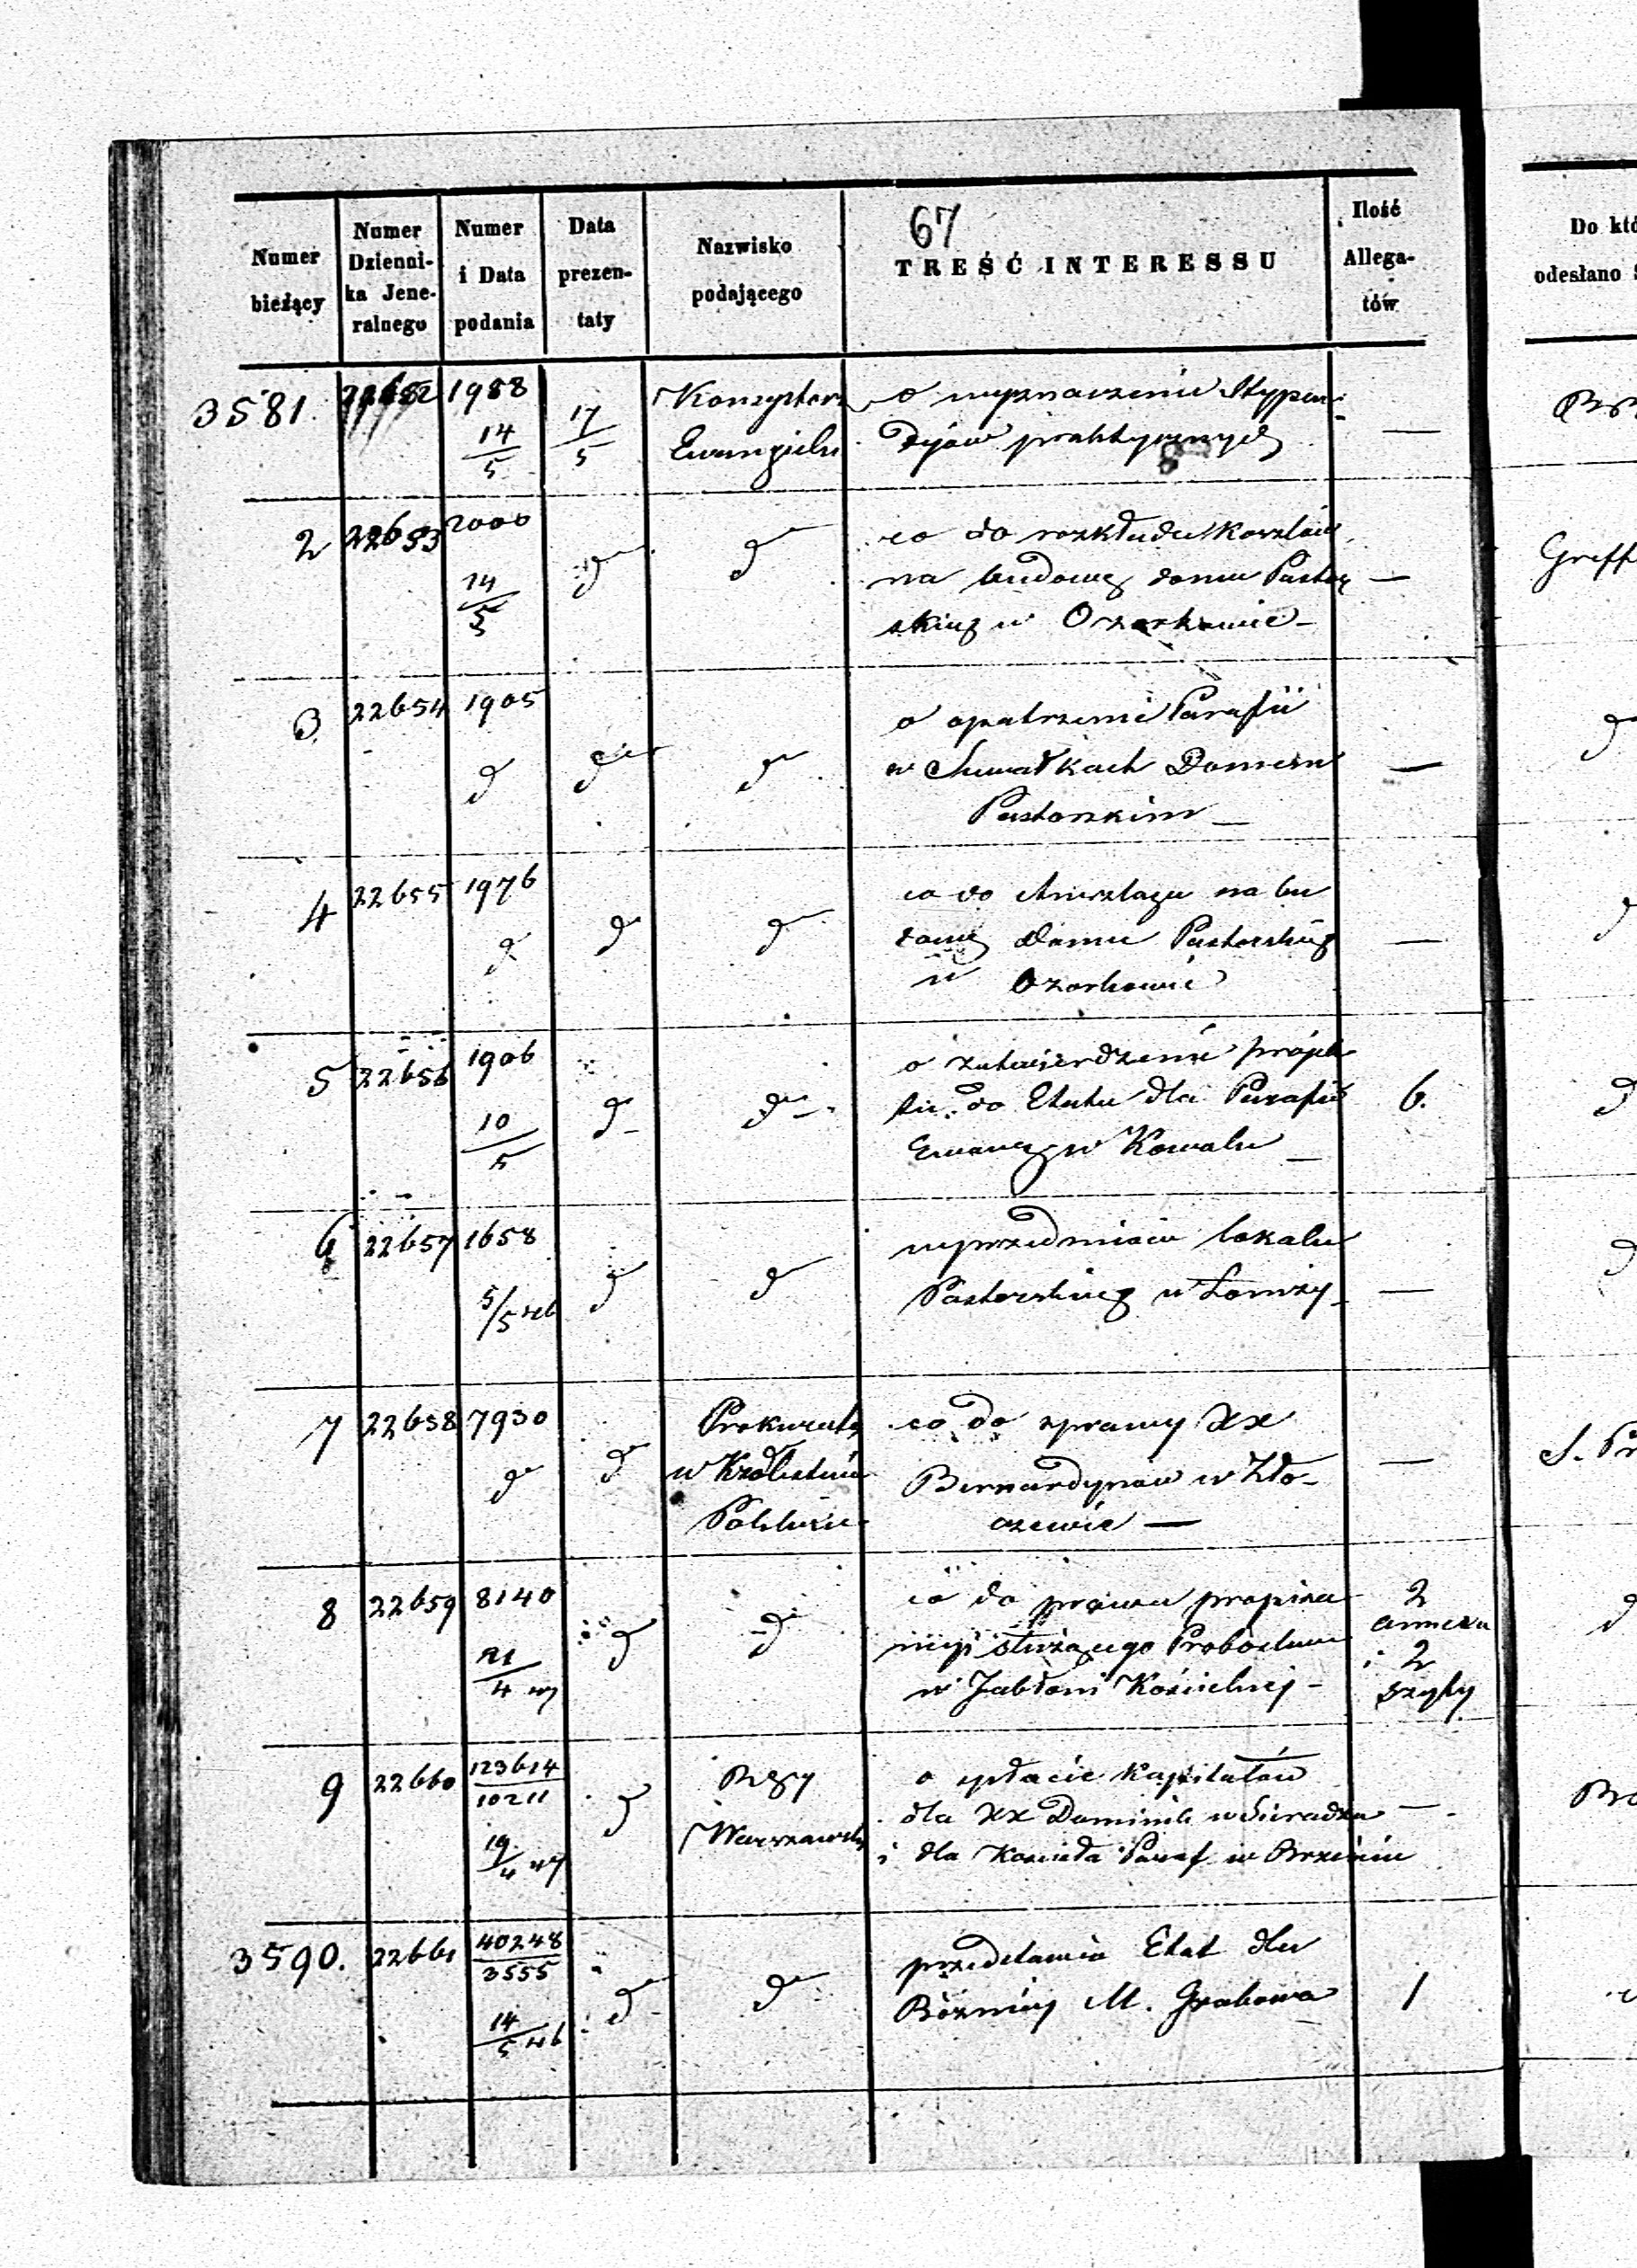 67
Numer bieżący
Numer Dzienni-ka Jene-ralnego
Numer i Data podania
Data prezen-taty
Nazwisko podającego
TREŚĆ INTERESSU
Ilość Allega-tów
Do któ
odesłano
3581. 22652 1988 14/5 17/5 Konsystorz o wyznaczenie Stypen-
Ewangielic dyów praktycznych —
2 22653 2000 14/5 d d co do rozkładu Kosztów
na budowę domu Pastor
skieg w Ozorkowie — —
Greff
3. 22654 1905 d d d o opatrzenie Parafii
w Suwałkach Domem —
Pastorskim —
4 22655 1976 d d d co do Anszlagu na bu
dowę Domu Pastorskieg —
w Ozorkowie
5 22656 1906 10/5 d d o zatwierdzenie projek
tu do Etatu dla Parafii 6. d
Ewang w Kowalu —
6 22657 1658 5/5 d d w przedmiocie lokalu
Pastorskieg w Łomży — —
7 22658 7930 d d Prokurato co do sprawy XX
w Królestwie Bernardynów w Zło- —
Polskiem czewie —
8 22659 8140 21/4 d d co do prawa propina
cyji służącego Probostwu
w Jabłoni Kościelnej —
2 annexa
i 2
szyty
9 22660 123614/10211 19/4 d Rząd o spłacie Kapitałów
Warszawski dla XX Dominik w Sieradzu —
i dla Kościoła Paraf w Brzeźniu
3590. 22661 40248/3555 14/5 d d przedstawia Etat dla
Bóżnicy M. Grabowa 1